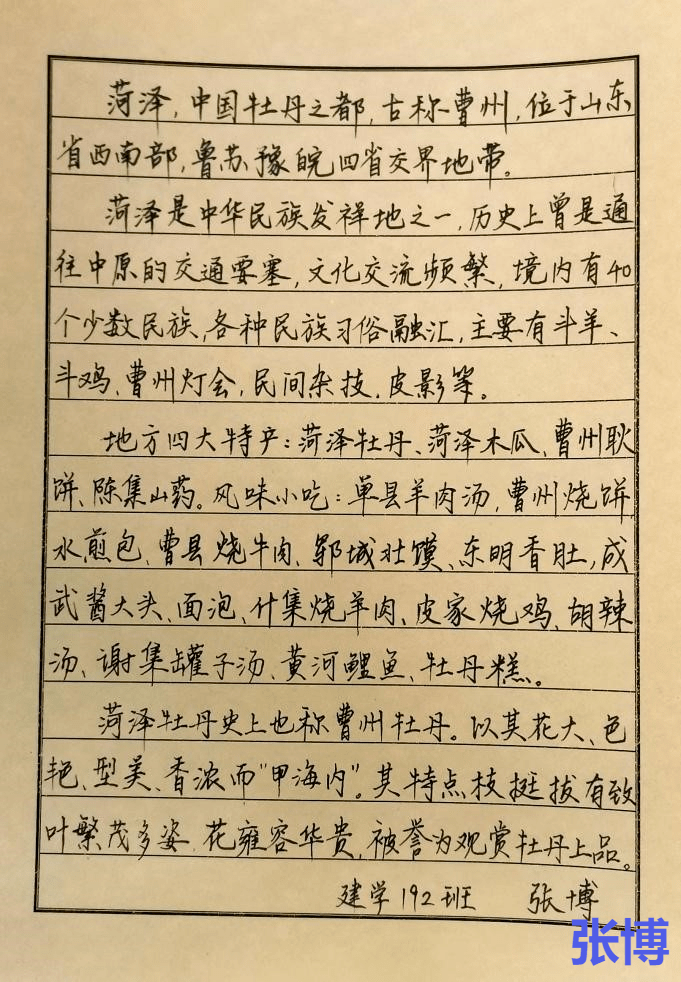 菏泽,中国牡丹之都,古称曹州,位于山东
省西南部,鲁苏豫皖四省交界地带。
菏泽是中华民族发祥地之一,历史上曾是通
往中原的交通要塞,文化交流频繁,境内有40
个少数民族,各种民族习俗融汇,主要有斗羊、
斗鸡、曹州灯会,民间杂技,皮影等。
地方四大特产:菏泽牡丹、菏泽木瓜、曹州耿
饼、陈集山药。风味小吃:单县羊肉汤,曹州烧饼,
水煎包、曹县烧牛肉、郓城壮馍、东明香肚,成
武酱大头、面泡、什集烧羊肉、皮家烧鸡、胡辣
汤、谢集罐子汤、黄河鲤鱼、牡丹糕。
菏泽牡丹史上也称曹州牡丹。以其花大、色
艳、型美、香浓而"甲海内"。其特点枝挺拔有致
叶繁茂多姿,花雍容华贵,被誉为观赏牡丹上品。
建学192班 张博
张博